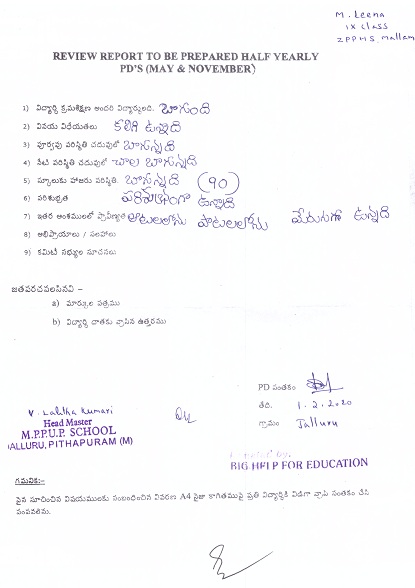 M. Leena
IX class
ZPPHS Mallam
REVIEW REPORT TO BE PREPARED HALF YEARLY
PD'S (MAY & NOVEMBER)
1) విద్యార్థి క్రమశిక్షణ అందరి విద్యార్థులది. బాగుంది
2) విషయ విధేయతలు కలిగి ఉన్నాది
3) పూర్వపు పరిస్థితి చదువులో బాగున్నది
4) నేటి పరిస్థితి చదువులో చాల బాగున్నది
5) స్కూలుకు హాజరు పరిస్థితి. బాగున్నది (90)
6) పరిశుభ్రత పరిశుభ్రంగా ఉన్నాది
7) ఇతర అంశములలో ప్రావీణ్యత ఆటలలోను పాటలలోను మెరుగుగా ఉన్నది
8) అభిప్రాయాలు / సలహాలు
9) కమిటీ సభ్యుల సూచనలు
జతపరచవలసినవి -
a) మార్కుల పత్రము
b) విద్యార్థి దాతకు వ్రాసిన ఉత్తరము
PD సంతకం
తేది. 1.2.2020
గ్రామం Jalluru
V. Lalitha Kumari
Head Master
M.P.P.U.P. SCHOOL
JALLURU, PITHAPURAM (M)
BIG HELP FOR EDUCATION
గమనిక:-
పైన సూచించిన విషయములకు సంబంధించిన వివరణ A4 సైజు కాగితముపై ప్రతి విద్యార్థికి విడిగా వ్రాసి సంతకం చేసి
పంపవలెను.